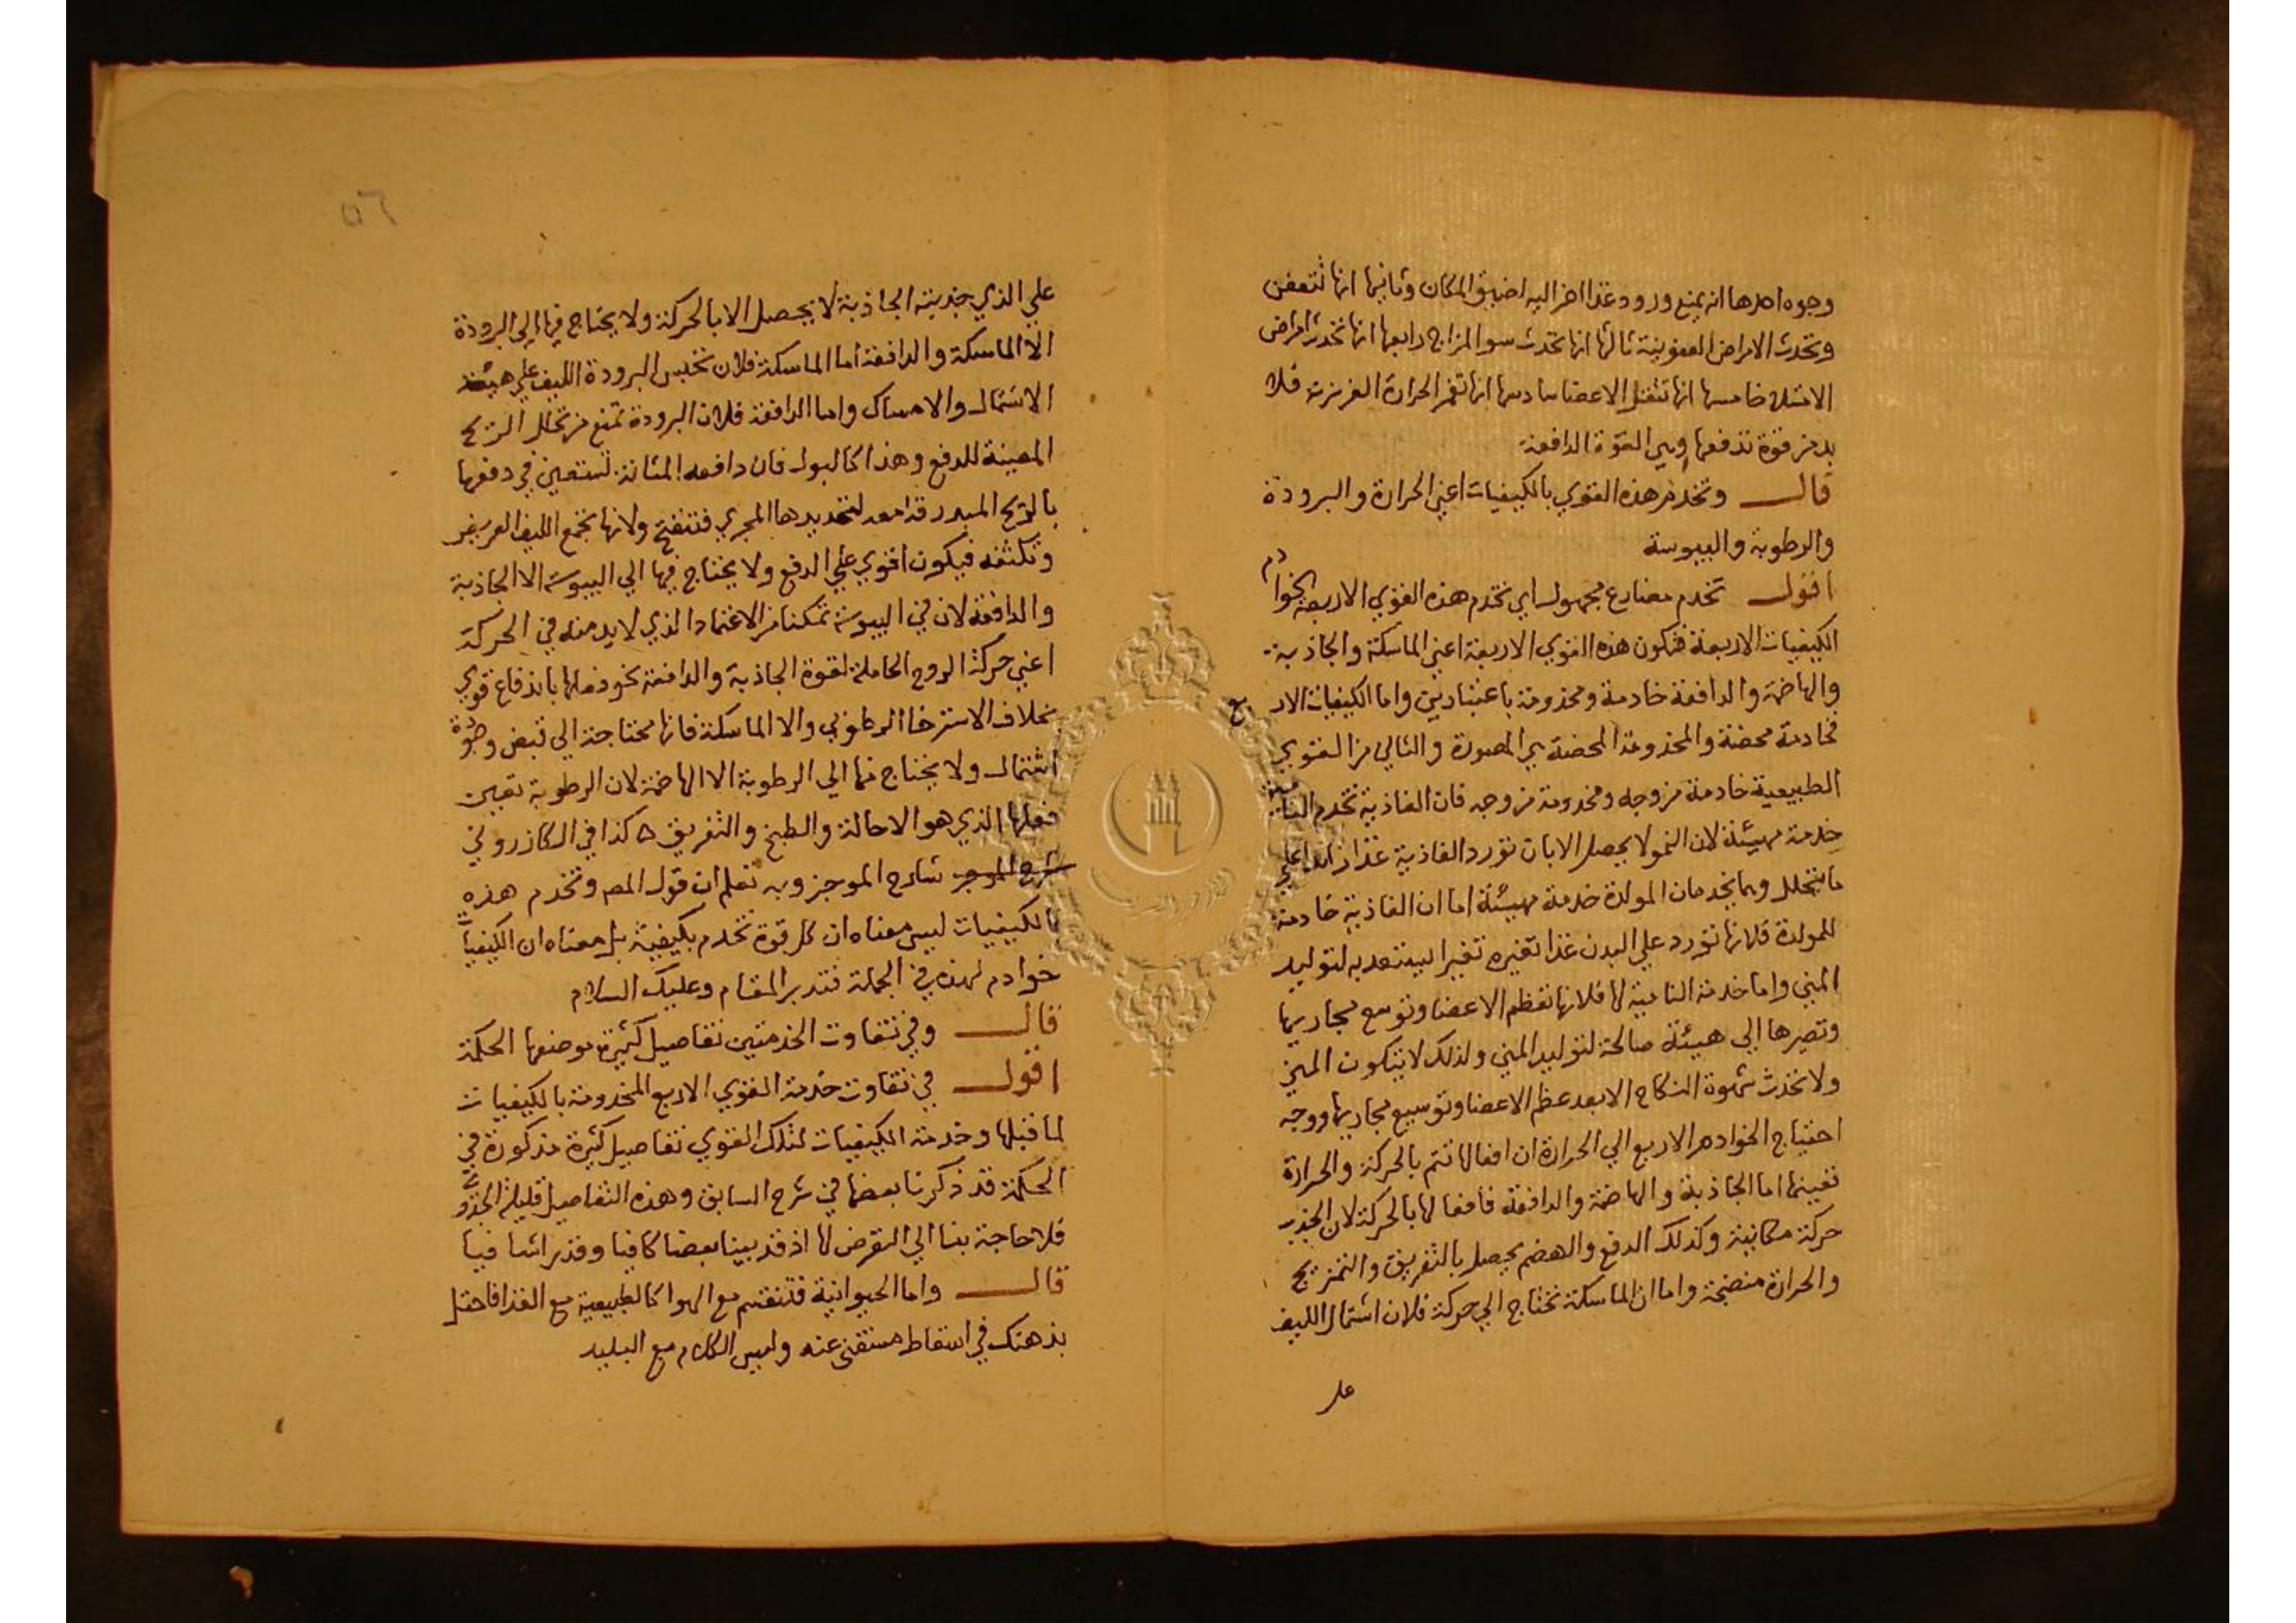 وجوه احدها انه يمنع ورود غذا اخر اليه لضيق المكان وثانيها انها تتعفن
وتحدث الامراض العفونية ثالثها انها تحدث سو المزاج رابعها انها تحدث امراض
الامتلا خامسها انها تثقل الاعضا سادسها انها تغمر الحرارة الغريزية فلا
بد من قوة تدفعها وهي القوة الدافعة
قال وتخدم هذه القوي بالكيفيات اعني الحرارة والبرودة
والرطوبة واليبوسة
اقول تخدم مضارع مجهول اي تخدم هذه القوي الاربعة بخوادم
الكيفيات الاربعة فتكون هذه القوي الاربعة اعني الماسكة والجاذبة
والهاضمة والدافعة خادمة ومخدومة باعتبارين واما الكيفيات الاربع
فخادمة محضة والمخدومة المحضة هي المصورة والتالي من القوي
الطبيعية خادمة من وجه ومخدومة من وجه فان الغاذية تخدم النامية
خدمة مهيئة لان النمو لا يحصل الا بان تورد الغاذية غذا زايدا علي
ما يتحلل وهما يخدمان المولدة خدمة مهيئة اما ان الغاذية خادمة
للمولدة فلانها تورد علي البدن غذا تغيره تغييرا يستعد به لتوليد
المني واما خدمة النامية لها فلانها تعظم الاعضا وتوسع مجاريها
وتصيرها الي هيئة صالحة لتوليد المني ولذلك لا يتكون المني
ولا تحدث شهوة النكاح الا بعد عظم الاعضا وتوسيع مجاريها ووجه
احتياج الخوادم الاربع الي الحرارة ان افعالها تتم بالحركة والحرارة
تعينها اما الجاذبة والهاضمة والدافعة فافعالها بالحركة لان الجذب
حركة مكانية وكذلك الدفع والهضم يحصل بالتفريق والتمزيج
والحرارة منضجة واما ان الماسكة تحتاج الي حركة فلان اشتمال الليف
علي
٥٦
علي الذي جذبته الجاذبة لا يحصل الا بالحركة ولا يحتاج فيها الي البرودة
الا الماسكة والدافعة اما الماسكة فلان تحبس البرودة الليف علي هيئة
الاشتمال والامساك واما الدافعة فلان البرودة تمنع من تحلل الريح
المعينة للدفع وهذا كالبول فان دافعه المثانة تستعين في دفعها
بالريح المبدرقة معه لتمديدها المجري فتنفتح ولانها تجمع الليف العريض
وتكثفه فيكون اقوي علي الدفع ولا يحتاج فيها الي اليبوسة الا الجاذبة
والدافعة لان في اليبوسة تمكنا من الاعتماد الذي لا بد منه في الحركة
اعني حركة الروح الحاملة لقوة الجاذبة والدافعة نحو فعلها باندفاع قوي
بخلاف الاسترخا الرطوبي والا الماسكة فانها محتاجة الي قبض وجودة
اشتمال ولا يحتاج فيها الي الرطوبة الا الهاضمة لان الرطوبة تعين
فعلها الذي هو الاحالة والطبخ والتفريق ه كذا في الكازروني
شرح الموجز شارح الموجز وبه تعلم ان قول المص وتخدم هذه
بالكيفيات ليس معناه ان كل قوة تخدم بكيفية بل معناه ان الكيفيات
خوادم لهذه في الجملة فتدبر المقام وعليك السلام
قال وفي تفاوت الخدمتين تفاصيل كثيرة موضعها الحكمة
اقول في تفاوت خدمة القوي الاربع المخدومة بالكيفيات
لما قبلها وخدمة الكيفيات لتلك القوي تفاصيل كثيرة مذكورة في
الحكمة قد ذكرنا بعضها في شرح السابق وهذه التفاصيل قليلة الجدوي
فلا حاجة بنا الي التعرض لها اذ قد بينا بعضا كافيا وقدرا شافيا
قال واما الحيوانية فتنقسم مع الهوا كالطبيعية مع الغذا فاحتل
بذهنك في اسقاط مستغني عنه وليس الكلام مع البليد